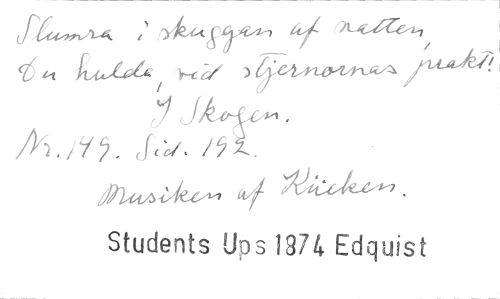 Slumra i skuggan af natten,
Du hulda, vid stjernornas prakt!
I Skogen.
Nr. 149. Sid. 192.
Musiken af Kücken.
Students Ups 1874 Edquist